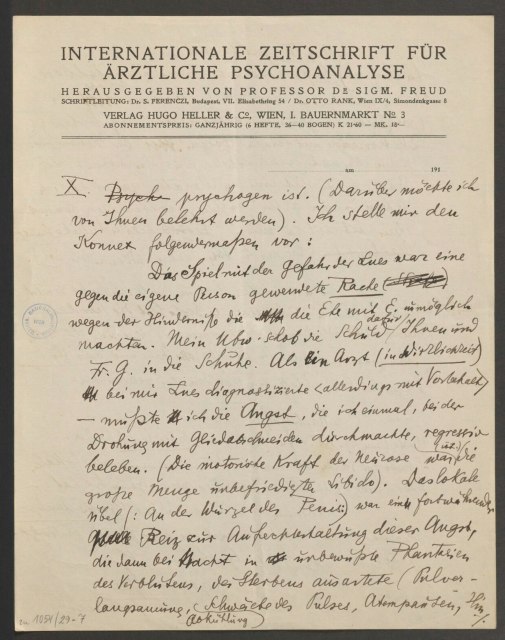 INTERNATIONALE ZEITSCHRIFT FÜR
ÄRZTLICHE PSYCHOANALYSE
HERAUSGEGEBEN VON PROFESSOR DR SIGM. FREUD
SCHRIFTLEITUNG: Dr. S. FERENCZI, Budapest, VII. Elisabethring 54 / Dr. OTTO RANK, Wien IX/4, Simondenkgasse 8
VERLAG HUGO HELLER & Co, WIEN, I. BAUERNMARKT No 3
ABONNEMENTSPREIS: GANZJÄHRIG (6 HEFTE, 36—40 BOGEN) K 21·60 = MK. 18·—
am 191
X. Psych psychogen ist. (Darüber möchte ich
von Ihnen belehrt werden). Ich stelle mir den
Konnex folgendermaßen vor:
Das Spiel mit der Gefahr der Lues war eine
gegen die eigene Person gewendete Rache
wegen der Hindernisse die die Ehe mit E. unmöglich
machten. Mein Ubw. schob die Schuld dafür Ihnen und
Fr. G. in die Schuhe. Als ein Arzt (in Wirklichkeit)
bei mir Lues diagnostizierte <allerdings mit Vorbehalt>
— mußte ich die Angst, die ich einmal, bei der
Drohung mit Gliedabschneiden durchmachte, regressiv
beleben. (Die motorische Kraft der Neurose war (ist) die
große Menge unbefriedigten Libido). Das lokale
Übel (: An der Wurzel des Penis) war ein fortwährender
Reiz zur Aufrechterhaltung dieser Angst,
die dann bei Nacht in unbewußte Phantasien
des Verblutens, des Sterbens ausartete (Pulsver-
langsamung, Schwäche des Pulses, Atempausen,
Abkühlung)
1054/29-7